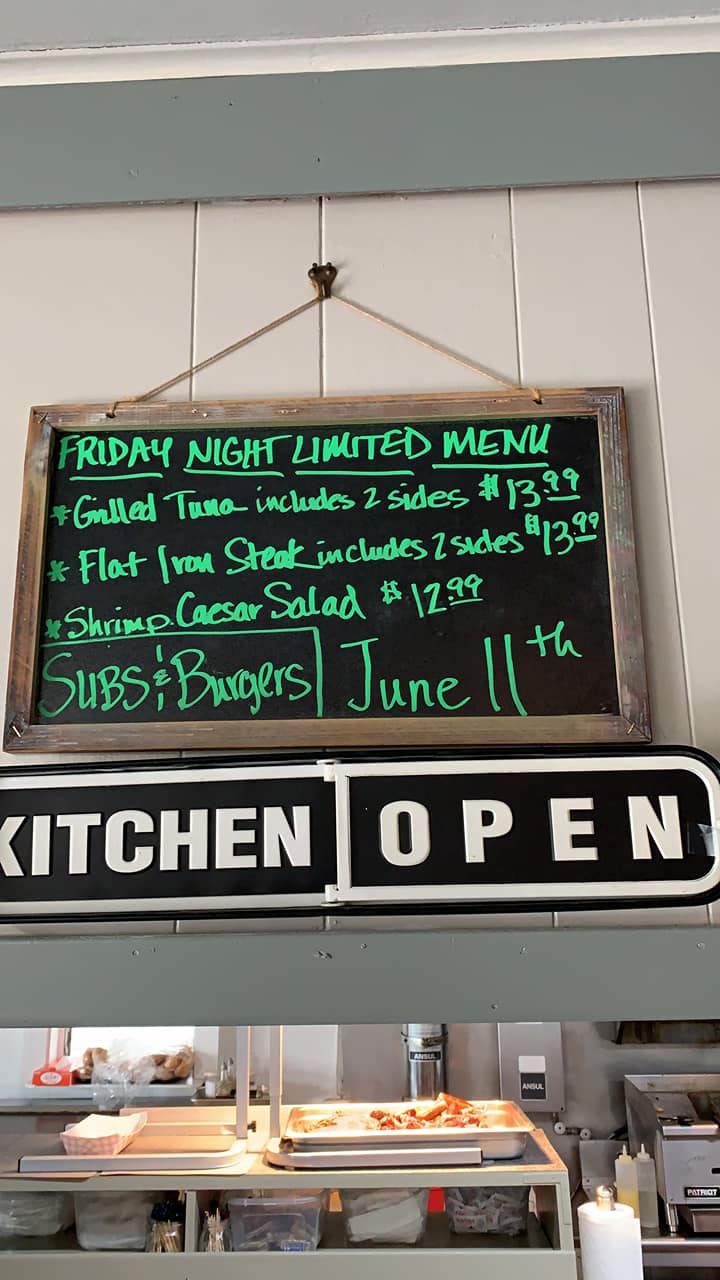 FRIDAY NIGHT LIMITED MENU
* Grilled Tuna includes 2 sides $13.99
* Flat Iron Steak includes 2 sides $13.99
* Shrimp Caesar Salad $12.99
SUBS & Burgers June 11th
KITCHEN OPEN
ANSUL
ANSUL
PATRIOT